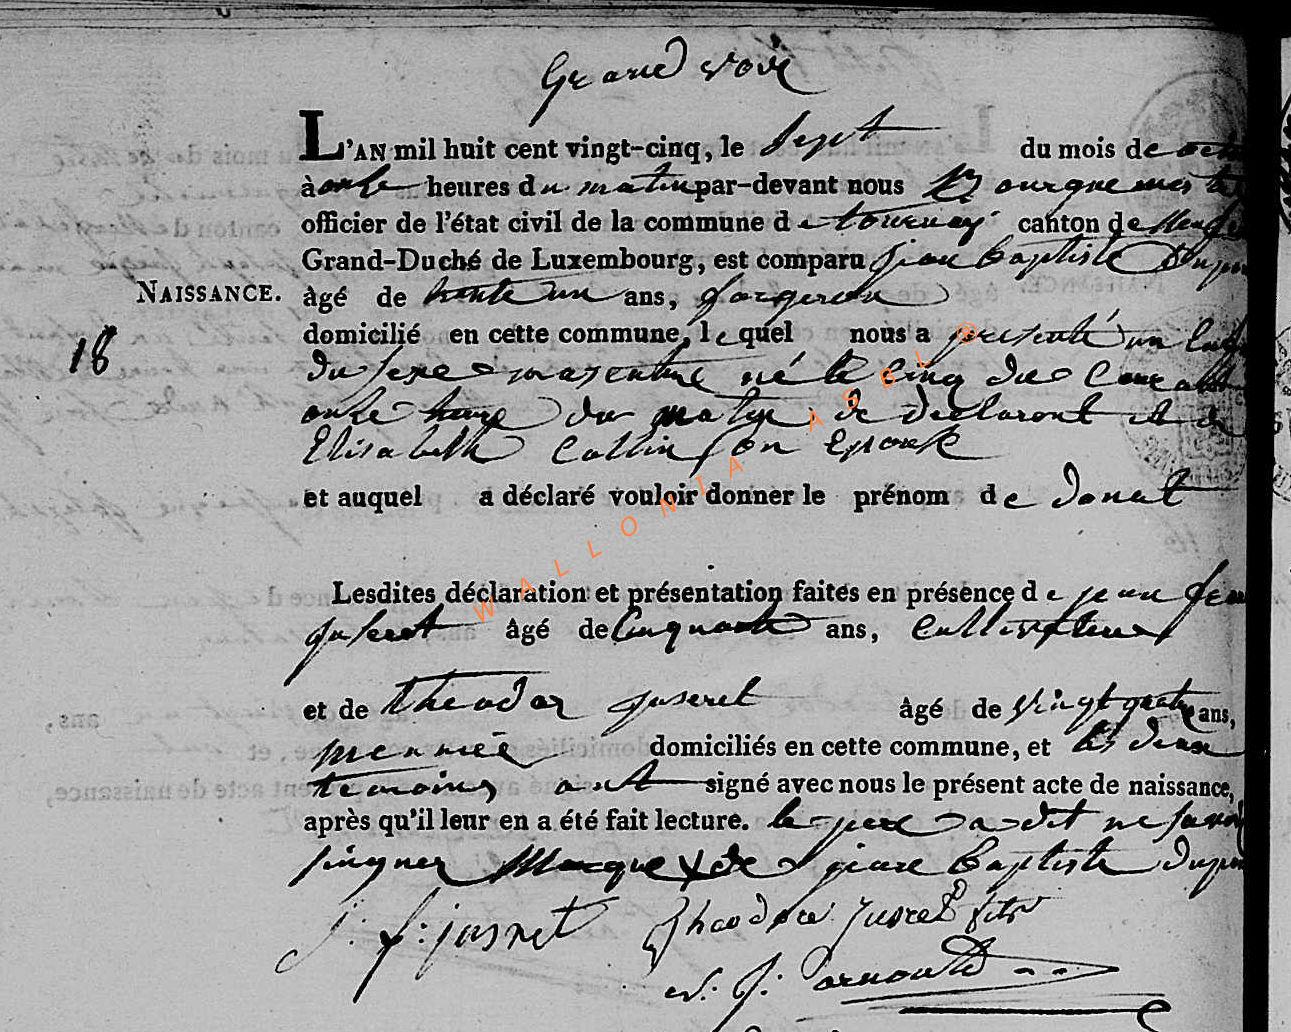 Grand voir
L'AN mil huit cent vingt-cinq, le Sept du mois de octo
à onze heures du matin par-devant nous Bourguemestre
officier de l'état civil de la commune de tournay canton de Neufch
Grand-Duché de Luxembourg, est comparu jean baptiste Dupon
NAISSANCE. âgé de trente un ans, forgeron
domicilié en cette commune, lequel nous a presenté un Enfa
18
du sexe masculin né le Cinq du Courant
onze heure du matin de declarant et de
Elisabeth Collin son Epouse
et auquel a déclaré vouloir donner le prénom de donat
Lesdites déclaration et présentation faites en présence de jean fran
juseret âgé de Cinquante ans, Cultivateur
et de theodor juseret âgé de vingt quatre ans,
domiciliés en cette commune, et les deux
temoins ont signé avec nous le présent acte de naissance,
après qu'il leur en a été fait lecture. le pere a dit ne savoir
singner Marque X de jean Baptiste dupon
J: f: jusret Theodore Jusret fils
J: arnould
WALLONIA ASBL ®